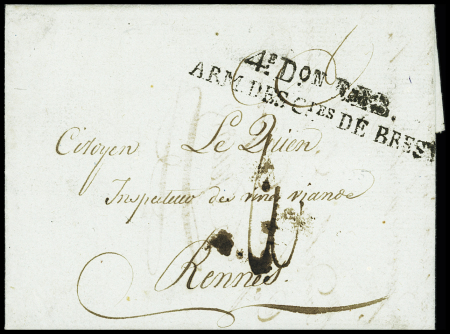 4E DON
ARM. DES CTES DE BREST
Citoyen Le Quien
Inspecteur des viande
Rennes